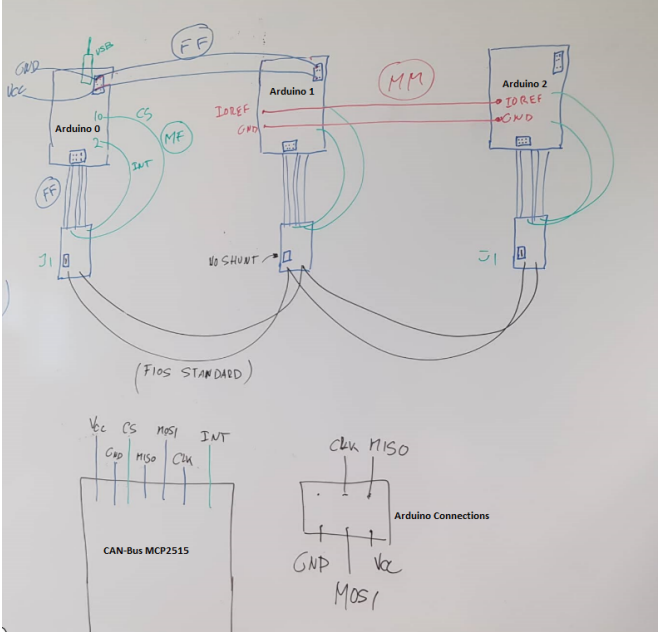 USB
FF
GND
VCC
Arduino 0
10
CS
2
MF
INT
FF
J1
Arduino 1
IOREF
GND
MM
Arduino 2
IOREF
GND
NO SHUNT
J1
(FIOS STANDARD)
Vcc CS MOSI INT
GND MISO CLK
CAN-Bus MCP2515
CLK MISO
Arduino Connections
GND VCC
MOSI